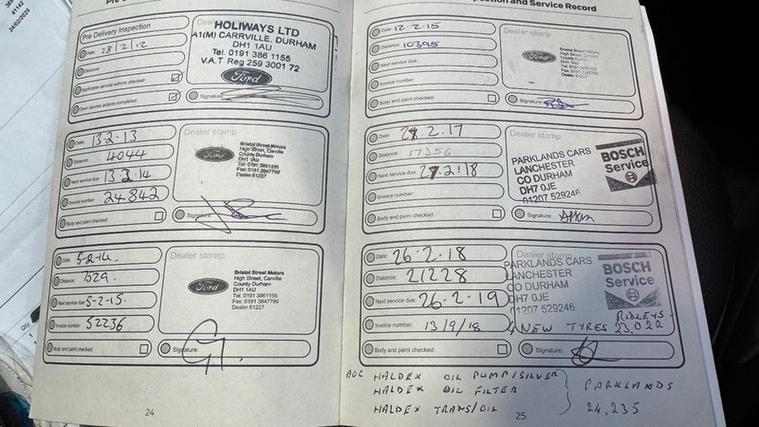 41142
24/02/2025
Pre Delivery Inspection
Date: 28/2/12
Distance:
Applicable service actions checked:
Open service actions completed:
HOLIWAYS LTD
A1(M) CARRVILLE, DURHAM
DH1 1AU
Tel. 0191 386 1155
V.A.T Reg 259 3001 72
Ford
Signature:
Date: 13-2-13
Distance: 4044
Next service due: 13-2-14
Invoice number: 24842
Body and paint checked:
Dealer stamp
Ford
Bristol Street Motors
High Street, Carville
County Durham
DH1 1AU
Tel: 0191 3861155
Fax: 0191 3847799
Dealer 61227
Signature:
Date: 5-2-14
Distance:
Next service due: 5-2-15.
Invoice number: 52236
Body and paint checked:
Dealer stamp
Ford
Bristol Street Motors
High Street, Carville
County Durham
DH1 1AU
Tel: 0191 3861155
Fax: 0191 3847799
Dealer 61227
Signature:
24
and Service Record
Date: 12.2.15
Distance: 10395
Next service due:
Invoice number:
Body and paint checked:
Dealer stamp
Ford
Bristol Street Motors
Signature:
Date: 27.2.17
Distance: 17356
Next service due: 27.2.18
Invoice number:
Body and paint checked:
Dealer stamp
PARKLANDS CARS
LANCHESTER
CO DURHAM
DH7 0JE
01207 529246
BOSCH
Service
Signature:
Date: 26-2-18
Distance: 21228
Next service due: 26-2-19
Invoice number: 13/9/18
Body and paint checked:
Dealer stamp
PARKLANDS CARS
LANCHESTER
CO DURHAM
DH7 0JE
01207 529246
BOSCH
Service
RIDLEYS
4 NEW TYRES 23,022
Signature:
HALDEX OIL PUMP/SILVER
HALDEX OIL FILTER
HALDEX TRANS/OIL
PARKLANDS
24,235
25